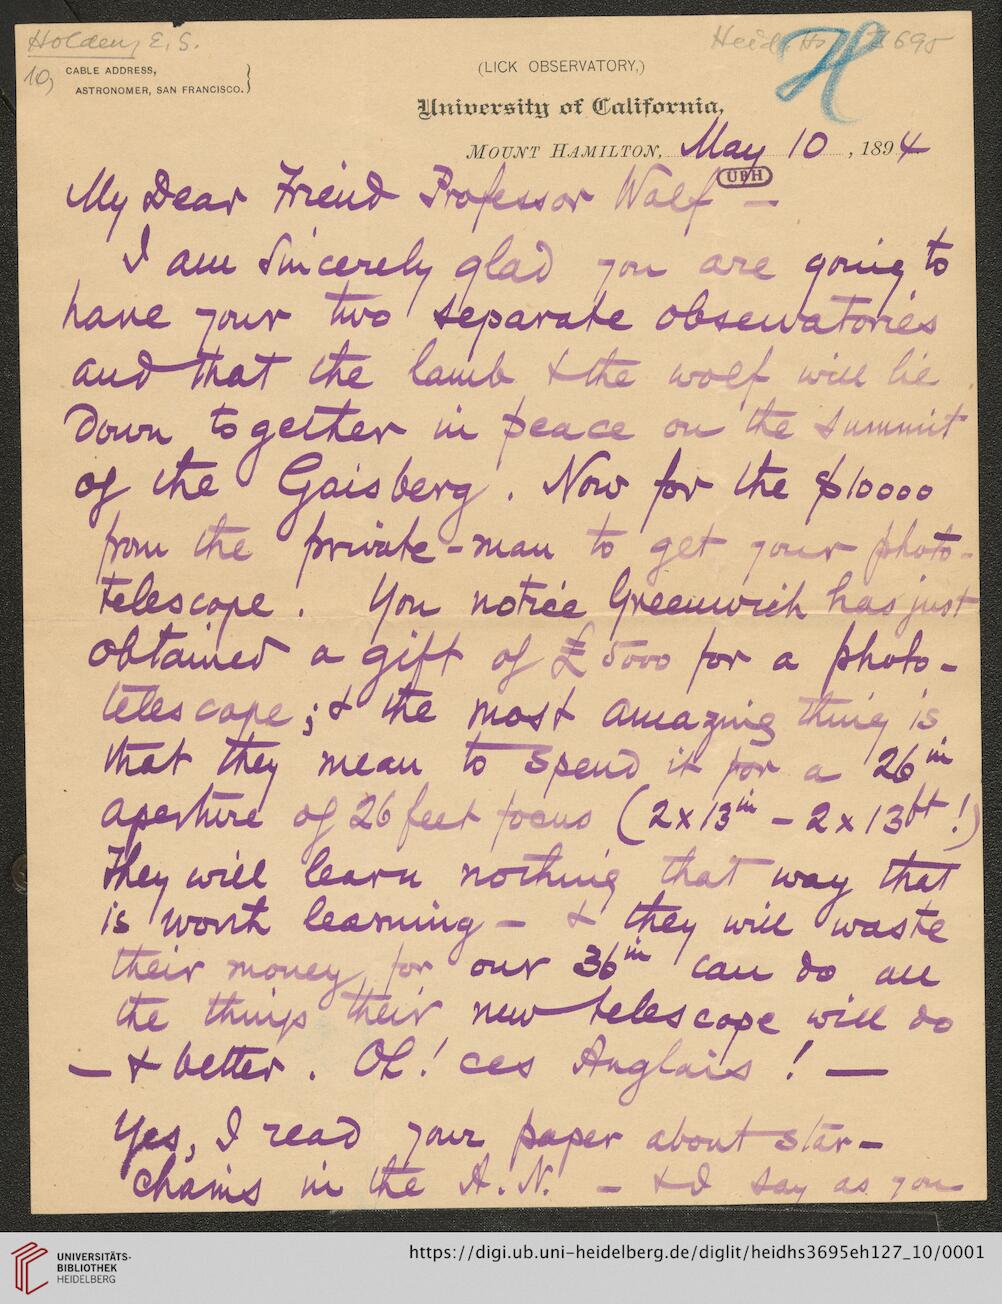 Holden, E. S.
10,
CABLE ADDRESS,
ASTRONOMER, SAN FRANCISCO.
Heid. Hs. 3695
H
(LICK OBSERVATORY,)
University of California,
MOUNT HAMILTON, May 10, 1894
UBH
My Dear Friend Professor Wolf —
I am sincerely glad you are going to
have your two separate observatories
and that the lamb & the wolf will lie
down together in peace on the summit
of the Gaisberg. Now for the $10000
from the private-man to get your photo-
telescope. You notice Greenwich has just
obtained a gift of £5000 for a photo-
telescope; & the most amazing thing is
that they mean to spend it for a 26in
aperture of 26 feet focus (2x13in — 2x13ft!)
They will learn nothing that way that
is worth learning — & they will waste
their money, for our 36in can do all
the things their new telescope will do
— & better. Oh! ces Anglais! —
Yes, I read your paper about star-
chains in the A.N. — & I say as you
UNIVERSITÄTS-
BIBLIOTHEK
HEIDELBERG
https://digi.ub.uni-heidelberg.de/diglit/heidhs3695eh127_10/0001